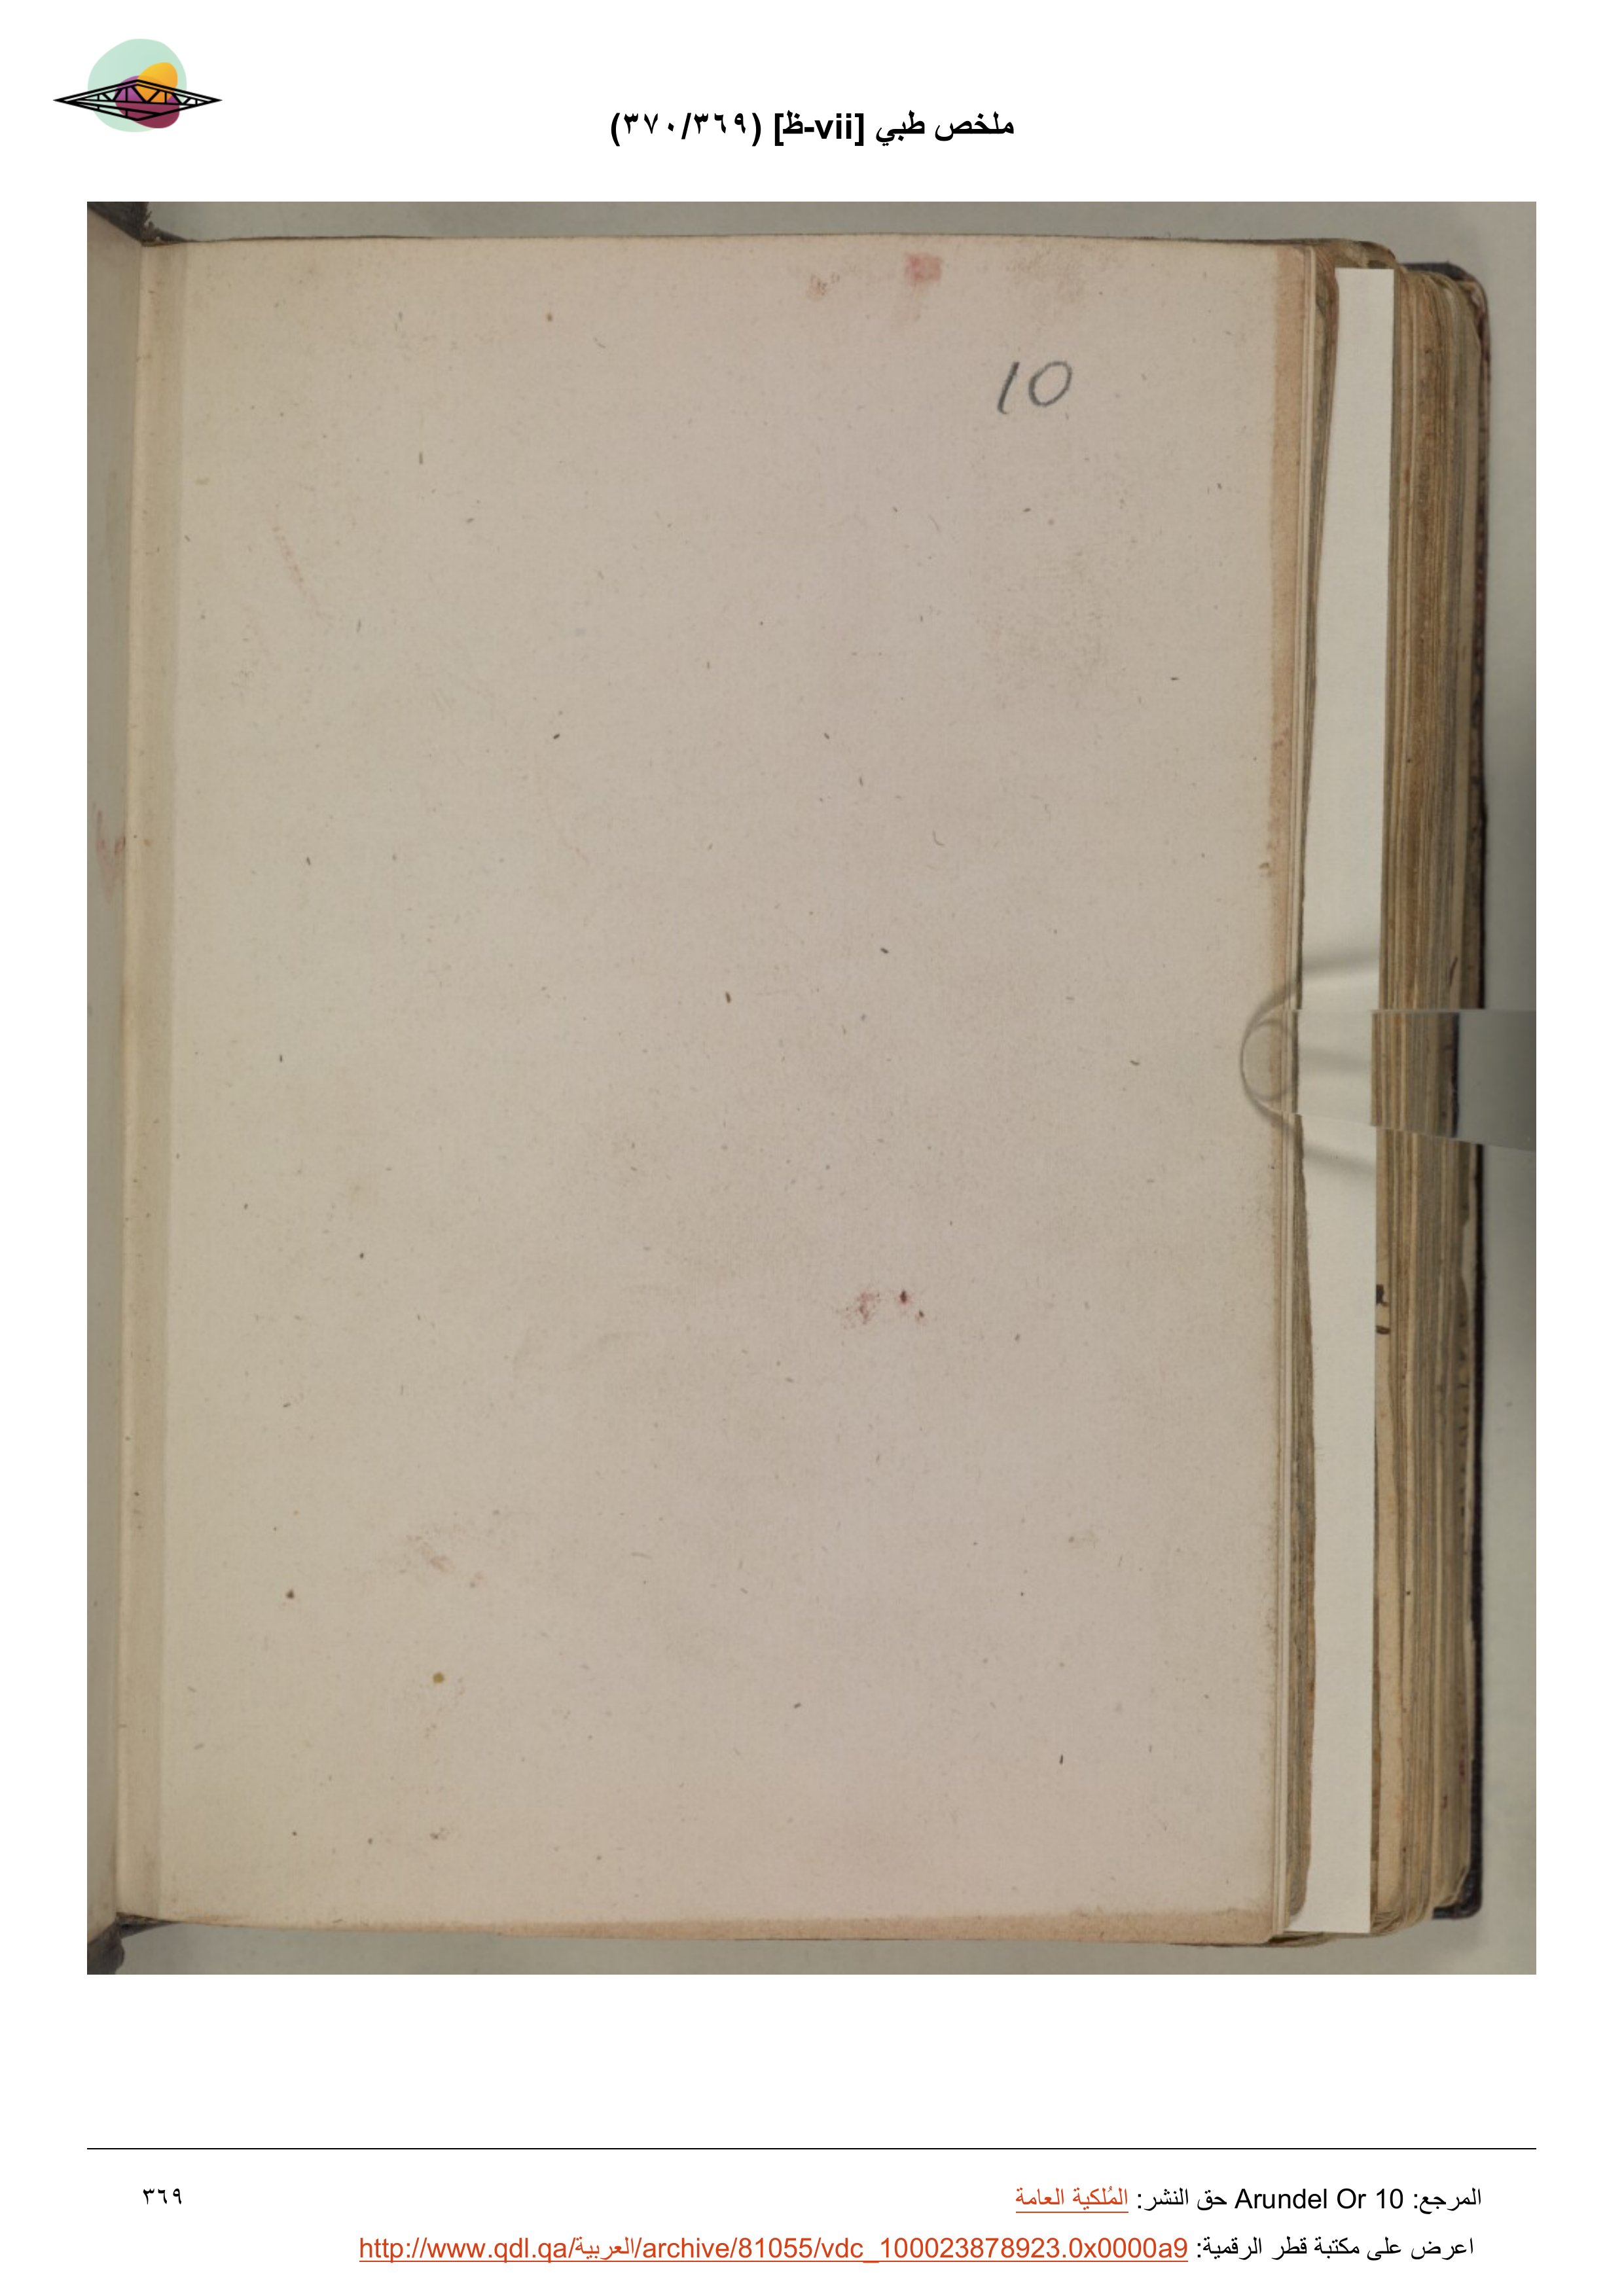 ملخص طبي [vii-ظ] (٣٦٩/٣٧٠)
10
المرجع: Arundel Or 10 حق النشر: المُلكية العامة
٣٦٩
اعرض على مكتبة قطر الرقمية: http://www.qdl.qa/العربية/archive/81055/vdc_100023878923.0x0000a9